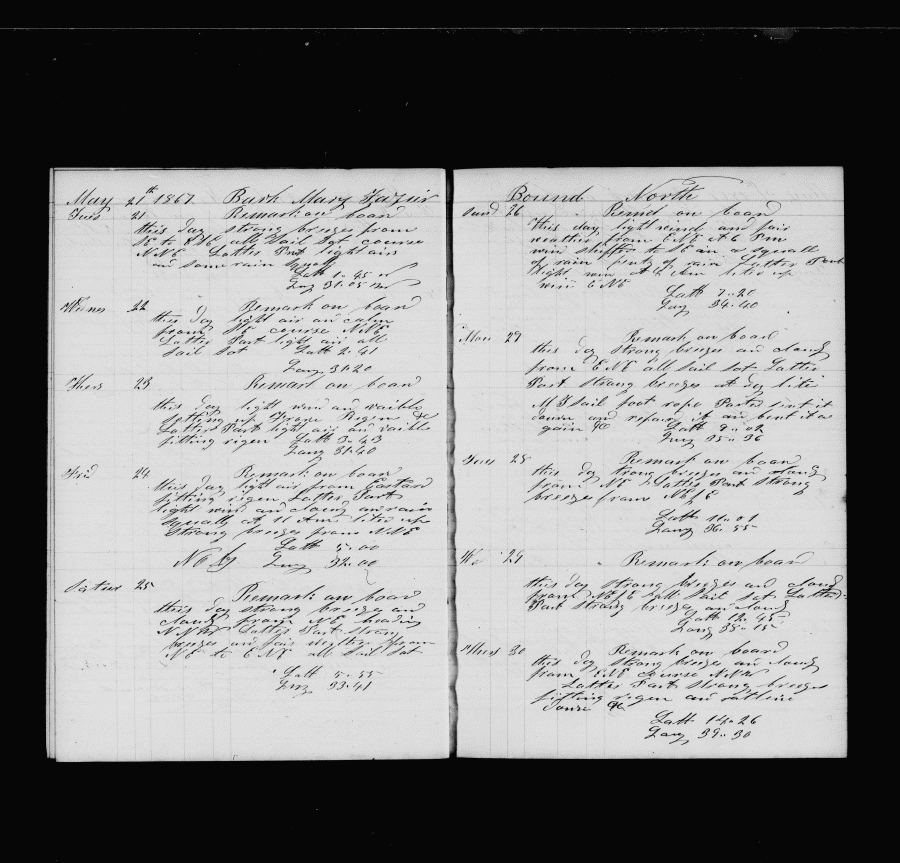 May 21th 1867 Bark Mary Frazier
Tues 21 Remark on board
this day strong breezes from
SE to all sail set course
NNE Latter Part light airs
and some rain squall
Latt 1..45 n
Lung 31..05 w
Wenes 22 Remark on board
this day light air and calm
from SE course NNE
Latter Part light air all
sail sot Latt 2..41
Lang 31..20
Thers 23 Remark on board
this day light win and vaible
Latter Part light air and vaible
fitting rigen Latt 3..43
Lang 31..40
Frid 24 Remark on board
this day light air from Eastard
fitting rigen Latter Part
light win and cloudy and rain
squally At 11 Am lited up
strong breezes from NNE
Latt 5..00
Lung 32..00
Satur 25 Remark on board
this day strong breezes and
cloudy from NE heading
NNW Latter Part stron
breezes and fair wether from
NE to ENE all sail sot
Latt 5..55
Lung 33..41
Bound North
Sund 26 Remd on board
this day light wind and fair
weather from ENE At 6 Pm
win shifted to SE an a squall
of rain plenty of rain Latter Part
light win At 4 Am lited up
win ENE
Latt 7..20
Lung 34..40
Mon 27 Remark on board
this day strong breezes and cloudy
from ENE all sail sot Latter
Part strong breezes At day lite
M T Sail foot rope Parted sent it
doune and repare it and bent it a
gain &c Latt 9..02
Lung 35..36
Tues 28 Remark on board
this day strong breezes and cloudy
from NE Latter Part strong
breezes from NE
Latt 11..01
Lang 36..55
We 29 Remark on board
this day strong breezes and cloudy
from all sail sot Latter
Part strong breezes and cloudy
Latt 12..45
Thers 30 Remark on board
this day strong breezes and cloudy
from ENE course NNW
Latter Part strong breezes
fitting rigen and ratlin
doune &c
Latt 14..26
Lang 39..30